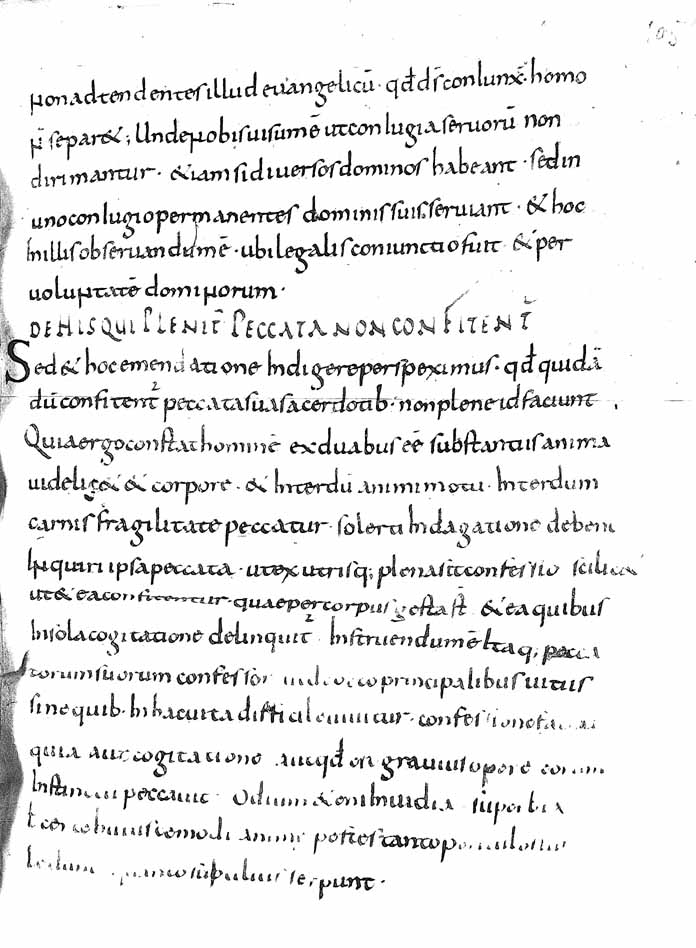 105
non adtendentes illud evangelicū · qđ dš conlunx̄ · homo
n̄ separ& ; Unde nobis uisum ē ut conlugia seruorū non
dirimantur · & iam si diuersos dominos habeant · sed in
uno conlugio permanentes dominis suis seruiant · & hoc
In illis obseruandum ē · ubi legalis coniunctio fuit & per
uoluntatē dominorum ·
DE HIS QUI PLENIT̄ PECCATA NON CONFITENT̄
Sed & hoc emendatione Indigere perspeximus · qđ quidā
dū confitent̄ peccata sua sacerdotib · non plene id faciunt
Quia ergo constat hominē ex duabus eē substantiis anima
uidelic& & corpore · & Interdū animi motu · Interdum
carnis fragilitate peccatur · solerti Indagatione debent
Inquiri ipsa peccata · ut ex utrisq; plena sit confessio scilic&
ut & ea confiteantur quae per corpus gesta st̄ & ea quibus
In sola cogitatione delinquit̄ Instruendum ē Itaq; pecca
torum suorum confessor principalibus uitiis
sine quib · In hac uita difficile confessione
quia aut cogitatione aut qđ grauius opere eorum
Instinctu peccauit Odium &enim Inuidia superbia
l cet huiuscemodi anime pestes tanto
ledunt quanto subtilius serpunt ·